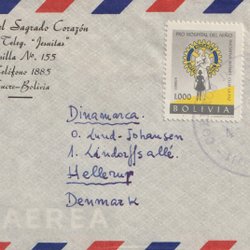 el Sagrado Corazón
Teleg. "Jesuitas"
silla Nº. 155
eléfono 1885
ruro-Bolivia
PRO HOSPITAL DEL NIÑO
1.000
BOLIVIA
Dinamarca.
O. Lund-Johansen
1. Lundorffsallé.
Hellerup
Denmark
AEREA